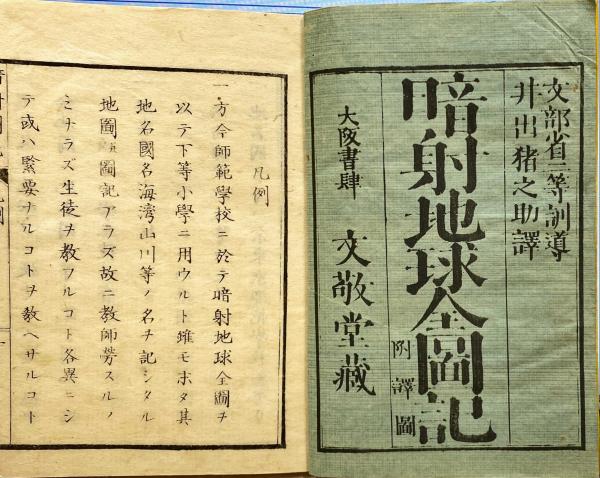 文部省三等訓導
井出猪之助譯
暗射地球全圖記
附譯圖
大阪書肆 文敬堂藏
凡例
一方今師範學校ニ於テ暗射地球全圖ヲ
以テ下等小學ニ用ウルト雖モホタ其
地名國名海湾山川等ノ名ヲ記シタル
地圖圖記アラズ故ニ教師労スルノ
ミナラズ生徒ヲ教フルコト各異ニシ
テ或ハ緊要ナルコトヲ教ヘサルコト